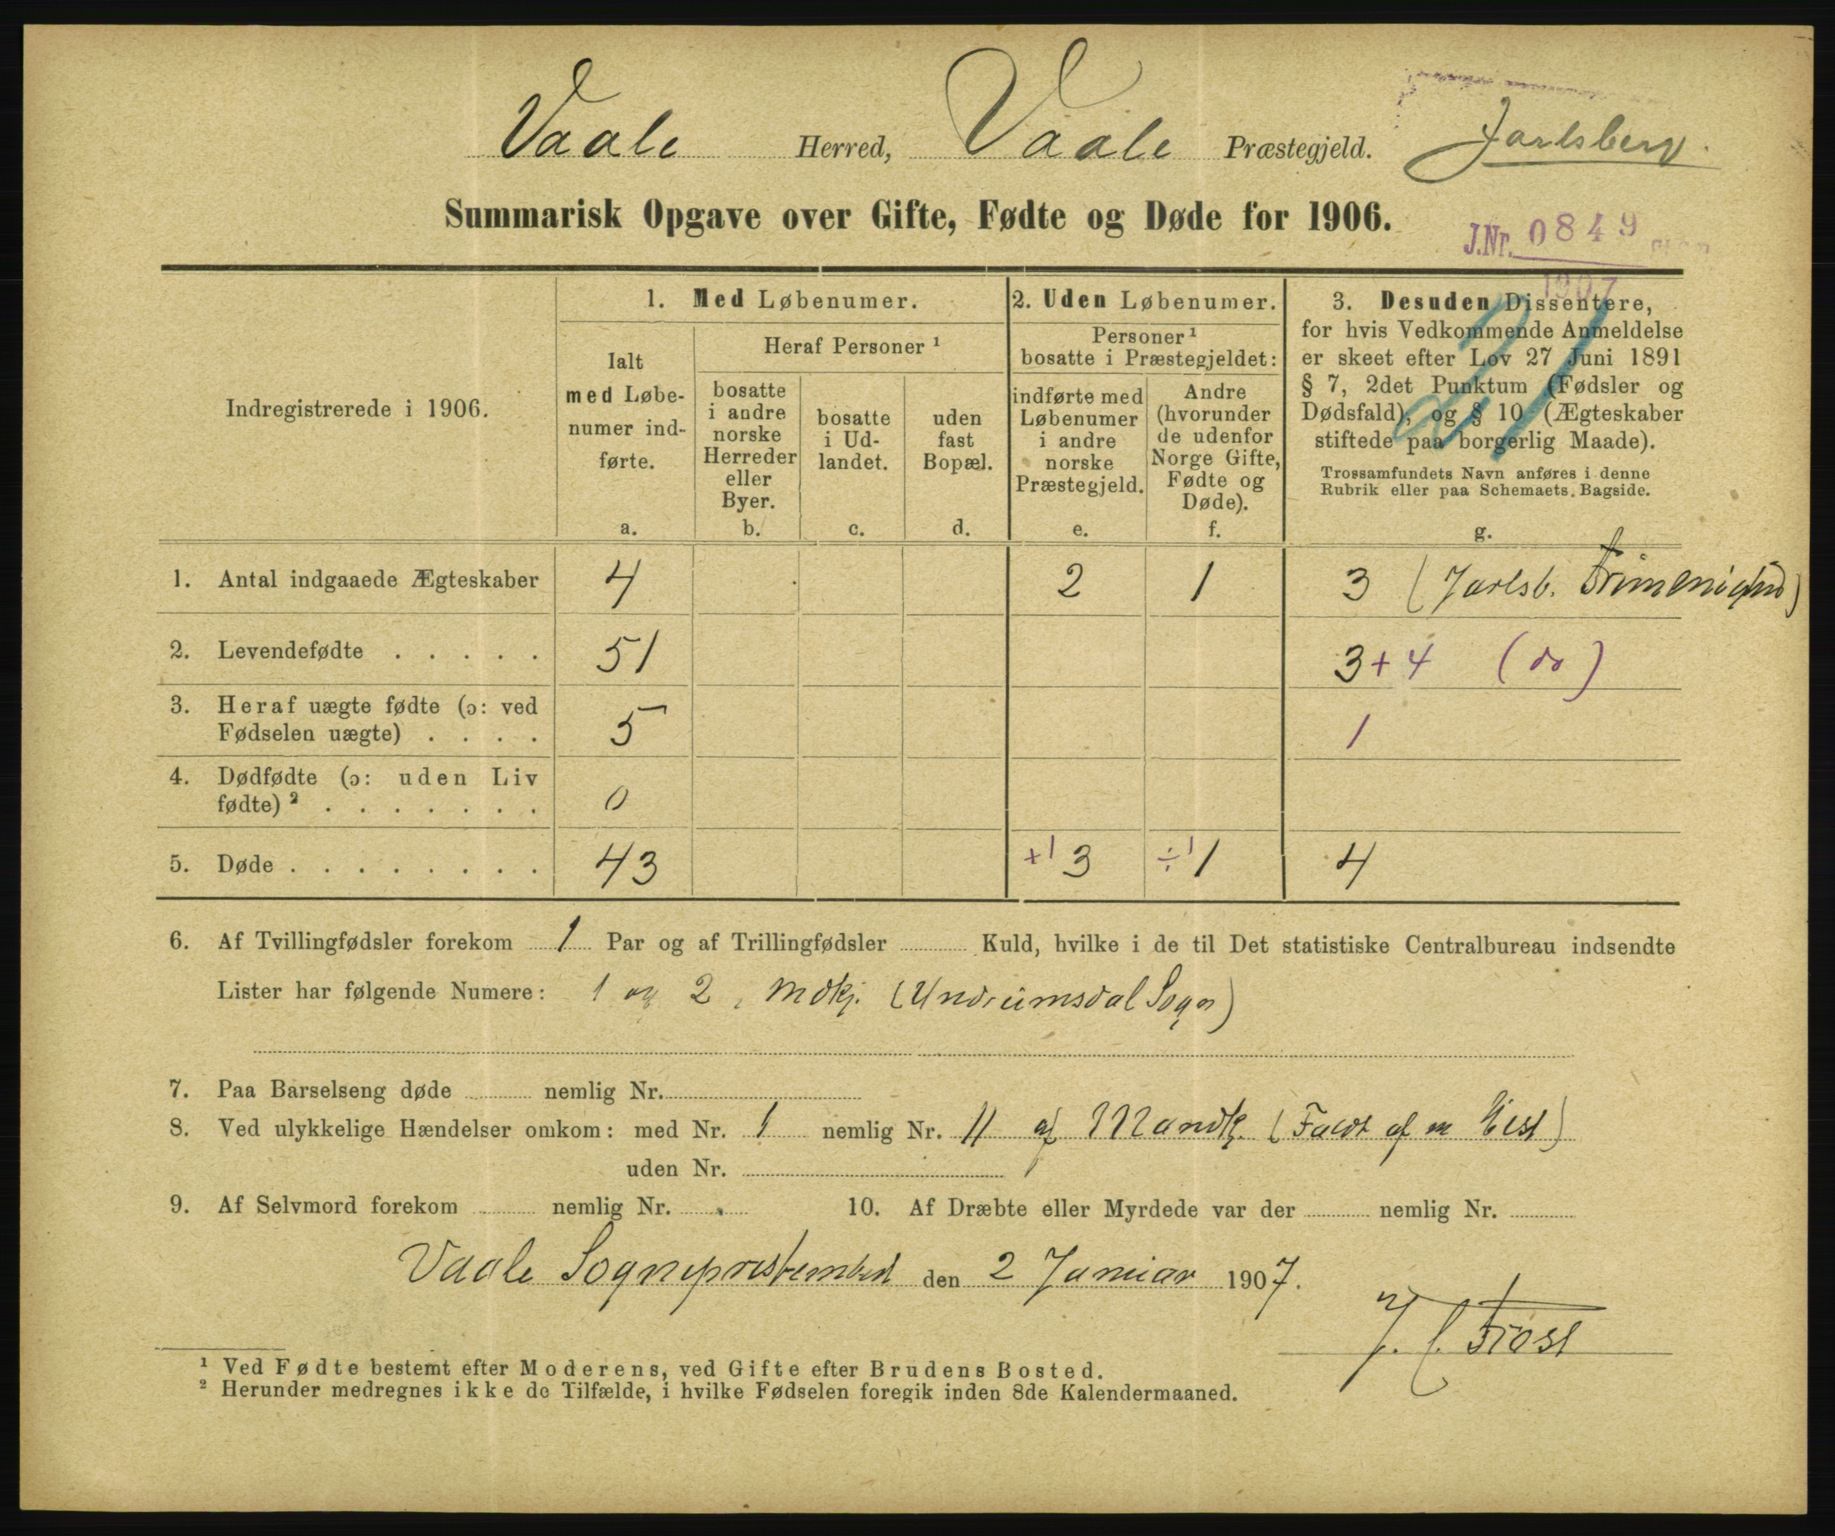 Vaale Herred, Vaale Præstegjeld. Jarlsberg.
Summarisk Opgave over Gifte, Fødte og Døde for 1906.
J.Nr. 0849
1907
21
Indregistrerede i 1906.
1. Med Løbenumer.
Ialt med Løbe-
numer ind-
førte.
a.
Heraf Personer ¹
bosatte
i andre
norske
Herreder
eller
Byer.
b.
bosatte
i Ud-
landet.
c.
uden
fast
Bopæl.
d.
2. Uden Løbenumer.
Personer ¹
bosatte i Præstegjeldet:
indførte med
Løbenumer
i andre
norske
Præstegjeld.
e.
Andre
(hvorunder
de udenfor
Norge Gifte,
Fødte og
Døde).
f.
3. Desuden Dissentere,
for hvis Vedkommende Anmeldelse
er skeet efter Lov 27 Juni 1891
§ 7, 2det Punktum (Fødsler og
Dødsfald), og § 10 (Ægteskaber
stiftede paa borgerlig Maade).
Trossamfundets Navn anføres i denne
Rubrik eller paa Schemaets Bagside.
g.
1. Antal indgaaede Ægteskaber 4 2 1 3 (Jarlsb. Frimenighed)
2. Levendefødte . . . . . 51 3 + 4 (do)
3. Heraf uægte fødte (ɔ: ved
Fødselen uægte) . . . . 5 1
4. Dødfødte (ɔ: uden Liv
fødte) ² . . . . . . . 0
5. Døde . . . . . . . . 43 +1 3 ÷1 1 4
6. Af Tvillingfødsler forekom 1 Par og af Trillingfødsler Kuld, hvilke i de til Det statistiske Centralbureau indsendte
Lister har følgende Numere: 1 og 2, Mdkj. (Undrumsdal Sogn)
7. Paa Barselseng døde nemlig Nr.
8. Ved ulykkelige Hændelser omkom: med Nr. 1 nemlig Nr. 11 af Mandk. (Faldt af en Hest)
uden Nr.
9. Af Selvmord forekom nemlig Nr. 10. Af Dræbte eller Myrdede var der nemlig Nr.
Vaale Sogneprestembed den 2 Januar 1907.
J. C. Frost
¹ Ved Fødte bestemt efter Moderens, ved Gifte efter Brudens Bosted.
² Herunder medregnes ikke de Tilfælde, i hvilke Fødselen foregik inden 8de Kalendermaaned.